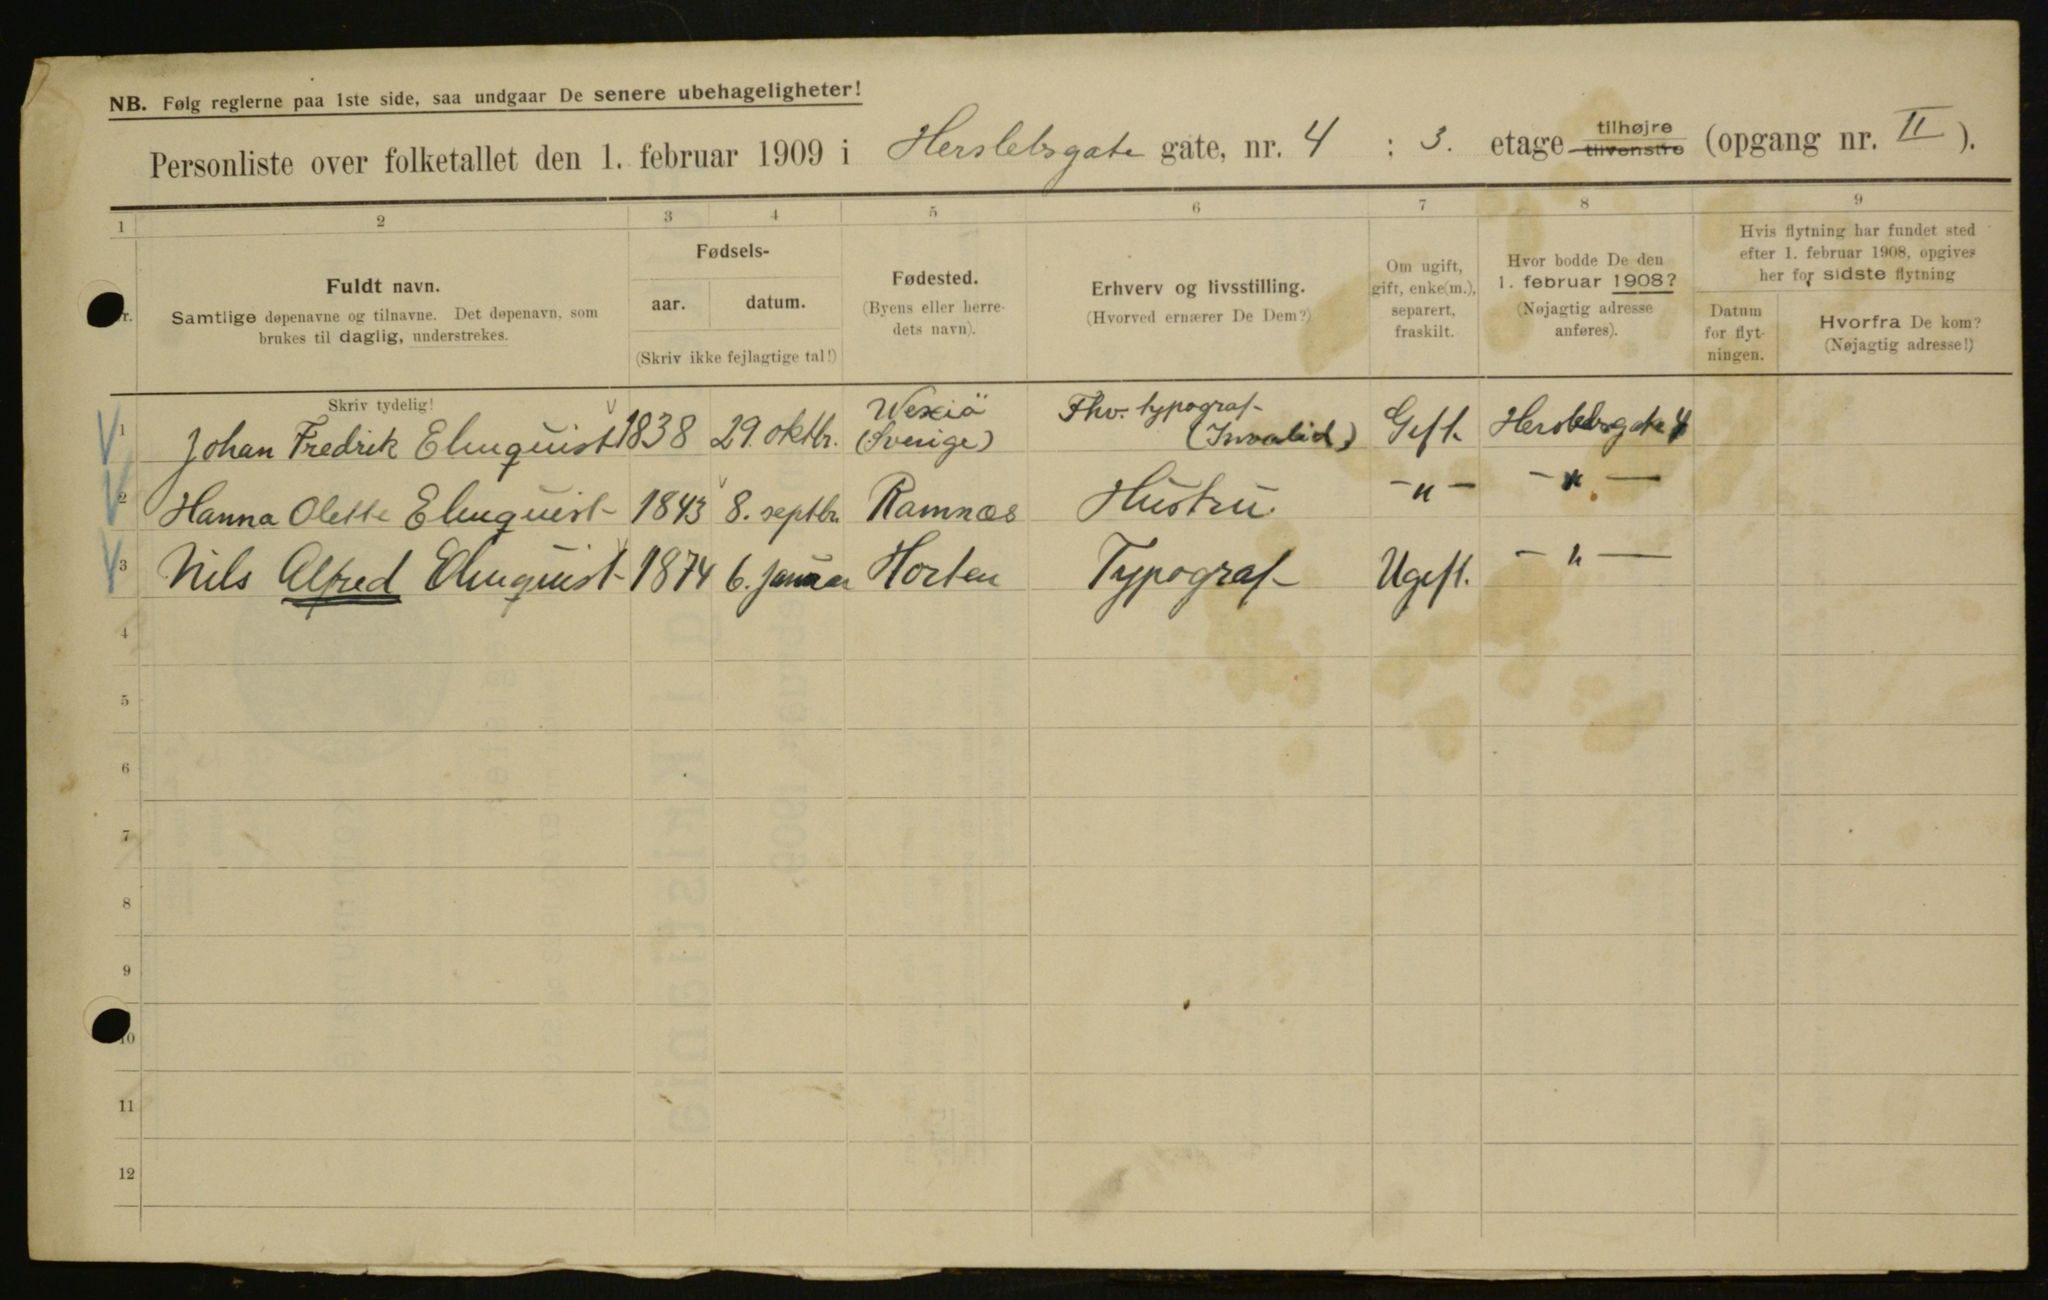 NB. Følg reglerne paa 1ste side, saa undgaar De senere ubehageligheter!
Personliste over folketallet den 1. februar 1909 i Herslebsgate gate, nr. 4 ; 3. etage tilhøjre tilvenstre (opgang nr. II ).
1 2 3 4 5 6 7 8 9
Nr.
Fuldt navn.
Samtlige døpenavne og tilnavne. Det døpenavn, som
brukes til daglig, understrekes.
Fødsels-
aar. datum.
(Skriv ikke fejlagtige tal!)
Fødested.
(Byens eller herre-
dets navn).
Erhverv og livsstilling.
(Hvorved ernærer De Dem?)
Om ugift,
gift, enke(m.),
separert,
fraskilt.
Hvor bodde De den
1. februar 1908?
(Nøjagtig adresse
anføres).
Hvis flytning har fundet sted
efter 1. februar 1908, opgives
her for sidste flytning
Datum
for flyt-
ningen.
Hvorfra De kom?
(Nøjagtig adresse!)
Skriv tydelig!
1 Johan Fredrik Elmquist 1838 29. oktbr. Wexiö (Sverige) Fhv. typograf (Invalid) Gift. Herslebsgate 4
2 Hanna Olette Elmquist 1843 8. septbr. Ramnæs Hustru. - " - - " -
3 Nils Alfred Elmquist 1874 6. januar Horten Typograf Ugift. - " -
4
5
6
7
8
9
10
11
12